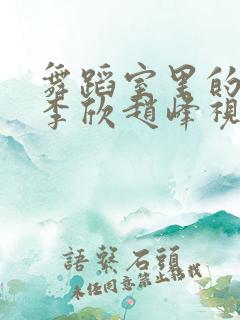 舞蹈室里的
李欣趙峰視
語繫石頭
未经同意禁止转载